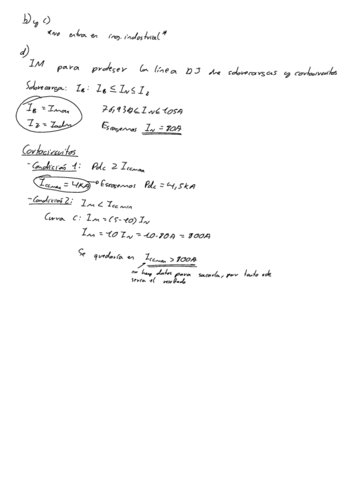 b) y c)
*no entra en ing. industrial*
d)
IM para proteger la línea DJ de sobrecargas y cortocircuitos
Sobrecarga: I_B: I_B ≤ I_N ≤ I_Z
I_B = I_max
I_Z = I_adm
76,93A ≤ I_N ≤ 105A
Escogemos I_N = 80A
Cortocircuitos
- Condición 1: PdC ≥ I_ccmax
I_ccmax = 4kA → Escogemos PdC = 4,5kA
- Condición 2: I_M < I_ccmin
Curva C: I_M = (5-10) I_N
I_M = 10 I_N = 10·80A = 800A
Se quedaría en I_ccmin > 800A
no hay datos para sacarla, por tanto este
sería el resultado